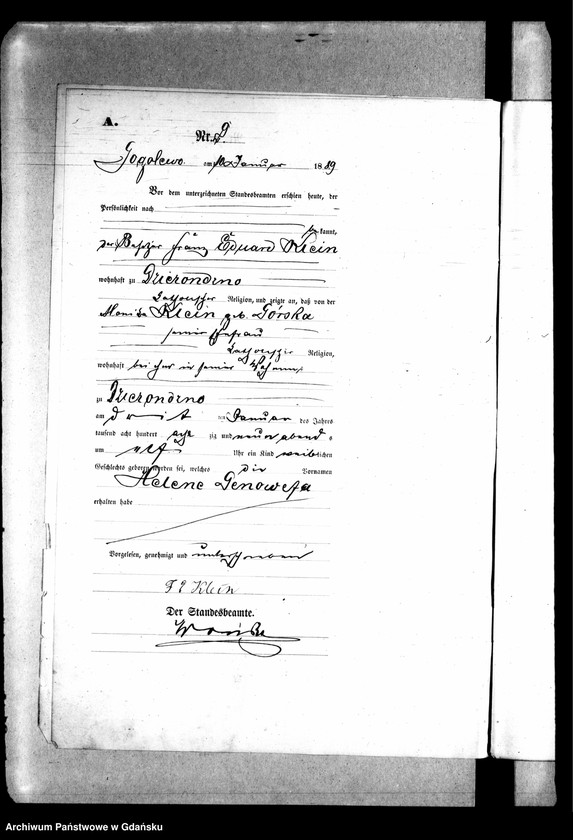 A.
Nr. 9.
Gogolewo am Januar 1889
Vor dem unterzeichneten Standesbeamten erschien heute, der
Persönlichkeit nach
bekannt,
der Besitzer Franz Eduard Klein
wohnhaft zu Dzierondzno
katholischer Religion, und zeigte an, daß von der
Monika Klein geb. Górska
seiner Ehefrau
katholischer Religion,
wohnhaft bei ihm in seiner Wohnung
zu Dzierondzno
am Januar des Jahres
tausend acht hundert acht zig und neun abends
um elf Uhr ein Kind weiblichen
Geschlechts geboren worden sei, welches die Vornamen
Helene Genowefa
erhalten habe
Vorgelesen, genehmigt und unterschrieben
F E Klein
Der Standesbeamte.
Archiwum Państwowe w Gdańsku